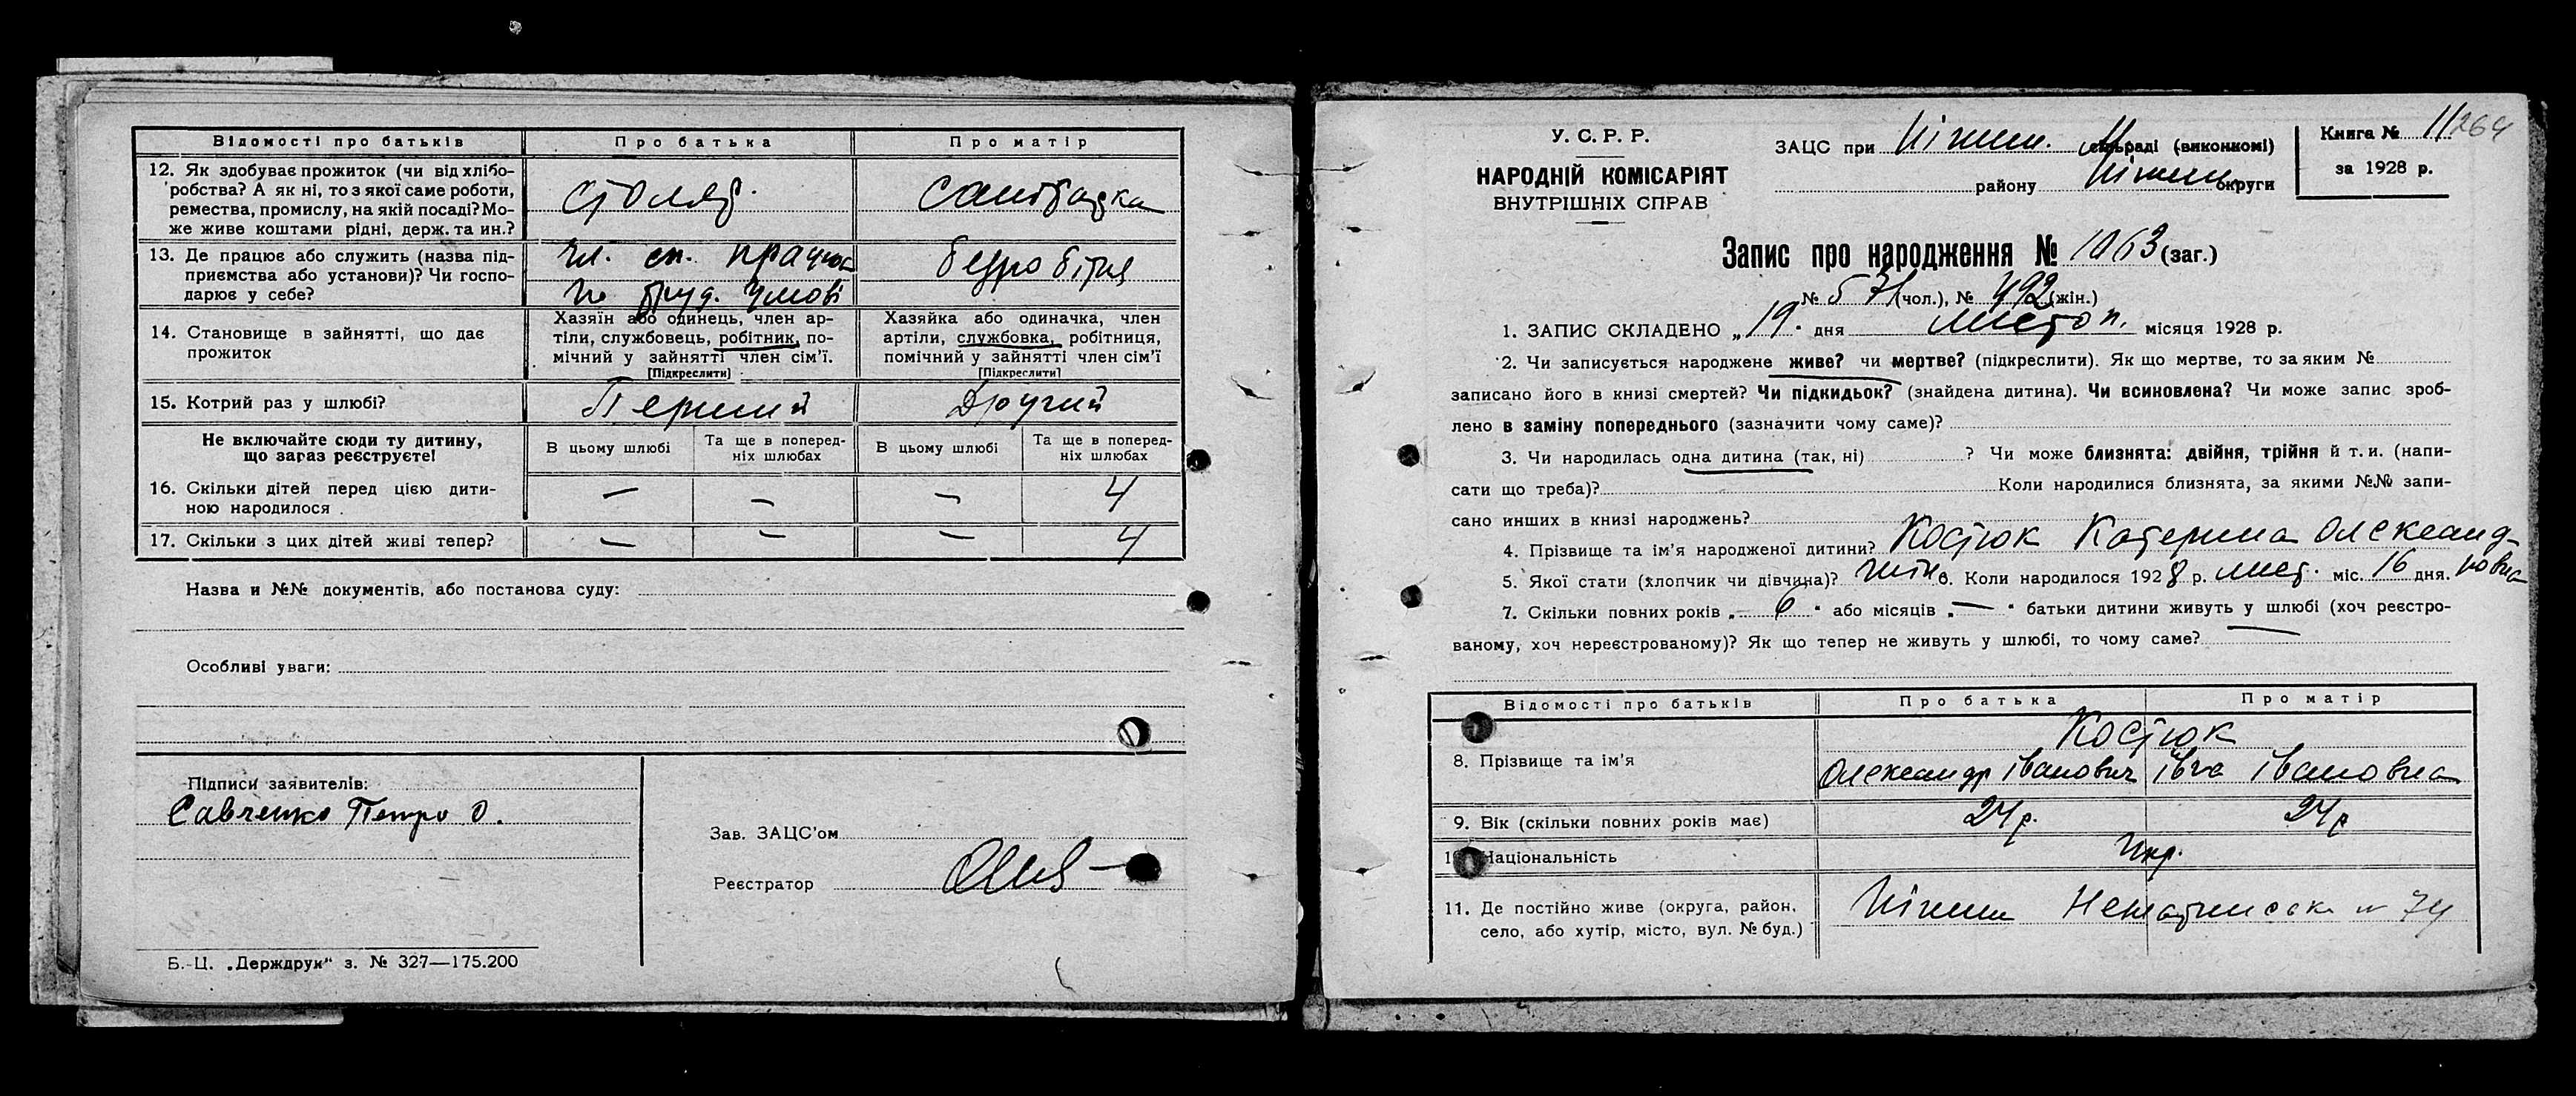 Відомості про батьків Про батька Про матір
12. Як здобуває прожиток (чи від хлібо-
робства? А як ні, то з якої саме роботи,
ремества, промислу, на якій посаді? Мо-
же живе коштами рідні, держ. та ин.?
столяр.
13. Де працює або служить (назва під-
приємства або установи)? Чи госпо-
дарює у себе?
чл. сп.
по труд. умові
безробітня
14. Становище в зайнятті, що дає
прожиток
Хазяїн або одинець, член ар-
тіли, службовець, робітник, по-
мічний у зайнятті член сім’ї.
[Підкреслити]
Хазяйка або одиначка, член
артіли, службовка, робітниця,
помічний у зайнятті член сім’ї
[Підкреслити]
15. Котрий раз у шлюбі? Перший Другий
Не включайте сюди ту дитину,
що зараз реєструєте!
В цьому шлюбі
Та ще в поперед-
ніх шлюбах
В цьому шлюбі
Та ще в поперед-
ніх шлюбах
16. Скільки дітей перед цією дити-
ною народилося . — — — 4
17. Скільки з цих дітей живі тепер? — — — 4
Назва и №№ документів, або постанова суду:
Особливі уваги:
Підписи заявителів:
Савченко Петро О.
Зав. ЗАЦС’ом
Реєстратор
Б.-Ц. „Держдрук“ з. № 327—175.200
У. С. Р. Р.
НАРОДНІЙ КОМІСАРІЯТ
ВНУТРІШНІХ СПРАВ
ЗАЦС при Ніжин. М сільраді (виконкомі)
району Ніжин. округи
Книга № 11 264
за 1928 р.
Запис про народження № 1063 (заг.)
№ 571 (чол.), № 492 (жін.)
1. ЗАПИС СКЛАДЕНО „19. дня листоп. місяця 1928 р.
2. Чи записується народжене живе? чи мертве? (підкреслити). Як що мертве, то за яким №
записано його в книзі смертей? Чи підкидьок? (знайдена дитина). Чи всиновлена? Чи може запис зроб-
лено в заміну попереднього (зазначити чому саме)?
3. Чи народилась одна дитина (так, ні) ? Чи може близнята: двійня, трійня й т. и. (напи-
сати що треба)? Коли народилися близнята, за якими №№ запи-
сано инших в книзі народжень?
4. Прізвище та ім’я народженої дитини? Костюк Катерина Олександ-
ровна
5. Якої стати (хлопчик чи дівчина)? жін. 6. Коли народилося 1928 р. лист. міс. 16 дня.
7. Скільки повних років „ 6 “ або місяців „ — “ батьки дитини живуть у шлюбі (хоч реєстро-
ваному, хоч нереєстрованому)? Як що тепер не живуть у шлюбі, то чому саме?
Відомості про батьків Про батька Про матір
Костюк
8. Прізвище та ім’я Олександр Іванович Івга Івановна
9. Вік (скільки повних років має) 24 р. 24 р
10. Національність Укр.
11. Де постійно живе (округа, район,
село, або хутір, місто, вул. № буд.)
Ніжин № 74